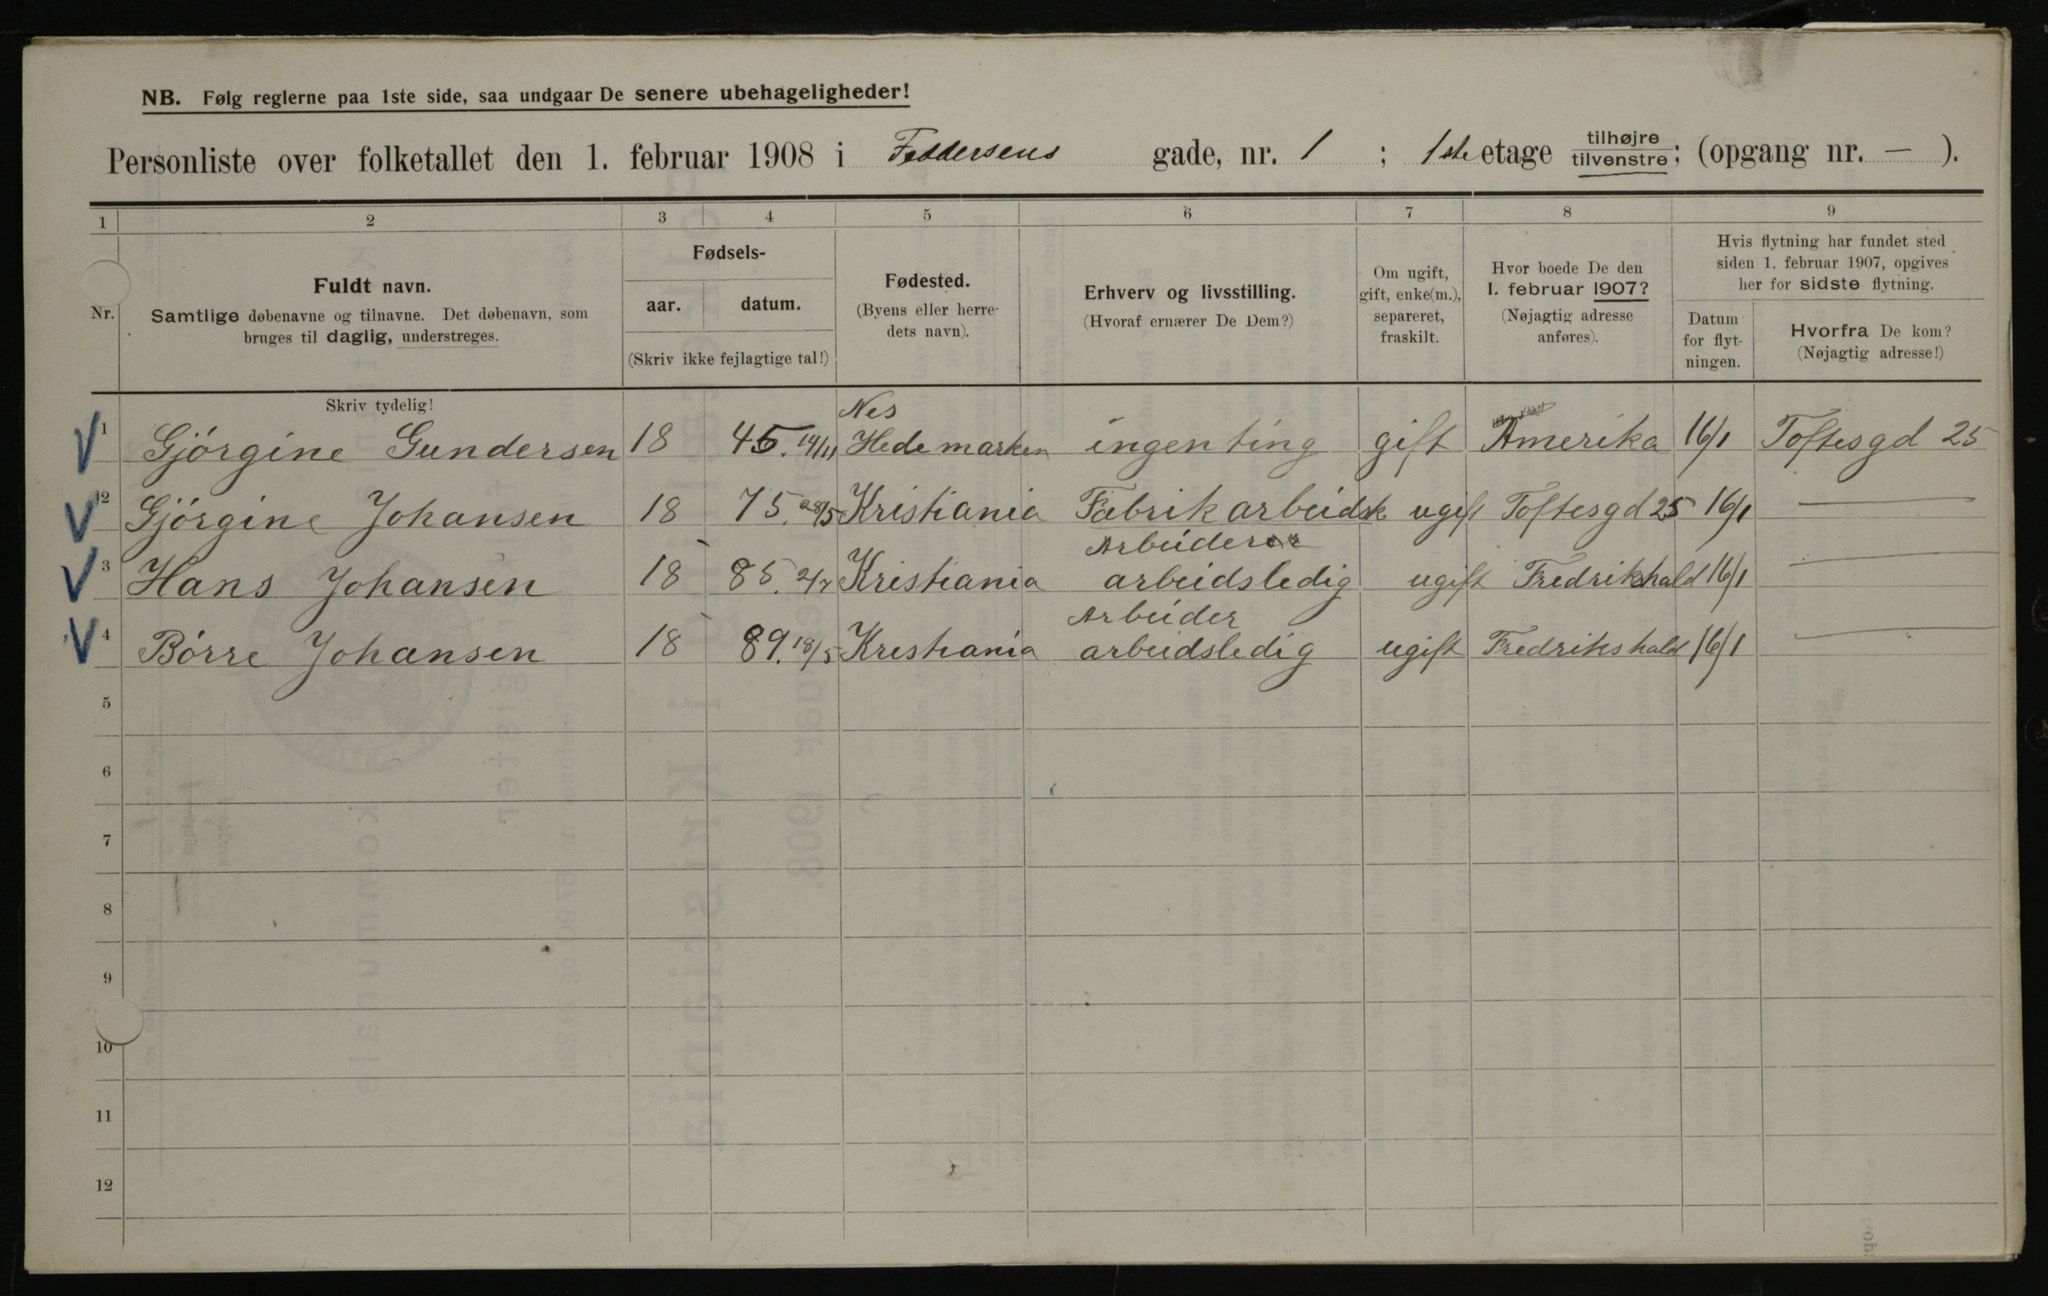 NB. Følg reglerne paa 1ste side, saa undgaar De senere ubehageligheder!
Personliste over folketallet den 1. februar 1908 i Feddersens gade, nr. 1 ; 1ste etage tilhøjre tilvenstre; (opgang nr. — ).
1 2 3 4 5 6 7 8 9
Nr.
Fuldt navn.
Samtlige døbenavne og tilnavne. Det døbenavn, som
bruges til daglig, understreges.
Fødsels-
aar. datum.
(Skriv ikke fejlagtige tal!)
Fødested.
(Byens eller herre-
dets navn).
Erhverv og livsstilling.
(Hvoraf ernærer De Dem?)
Om ugift,
gift, enke(m.),
separeret,
fraskilt.
Hvor boede De den
1. februar 1907?
(Nøjagtig adresse
anføres).
Hvis flytning har fundet sted
siden 1. februar 1907, opgives
her for sidste flytning.
Datum
for flyt-
ningen.
Hvorfra De kom?
(Nøjagtig adresse!)
Skriv tydelig!
Nes
1 Gjörgine Gundersen 18 45. 14/11 Hedemarken ingen ting gift Amerika 16/1 Toftesgd 25
2 Gjörgine Johansen 18 75. 28/5 Kristiania Fabrikarbeidsk ugift Toftesgd 25 16/1 —
Arbeider
3 Hans Johansen 18 85. 2/7 Kristiania arbeidsledig ugift Fredrikshald 16/1 —
Arbeider
4 Börre Johansen 18 89. 18/5 Kristiania arbeidsledig ugift Fredrikshald 16/1 —
5
6
7
8
9
10
11
12